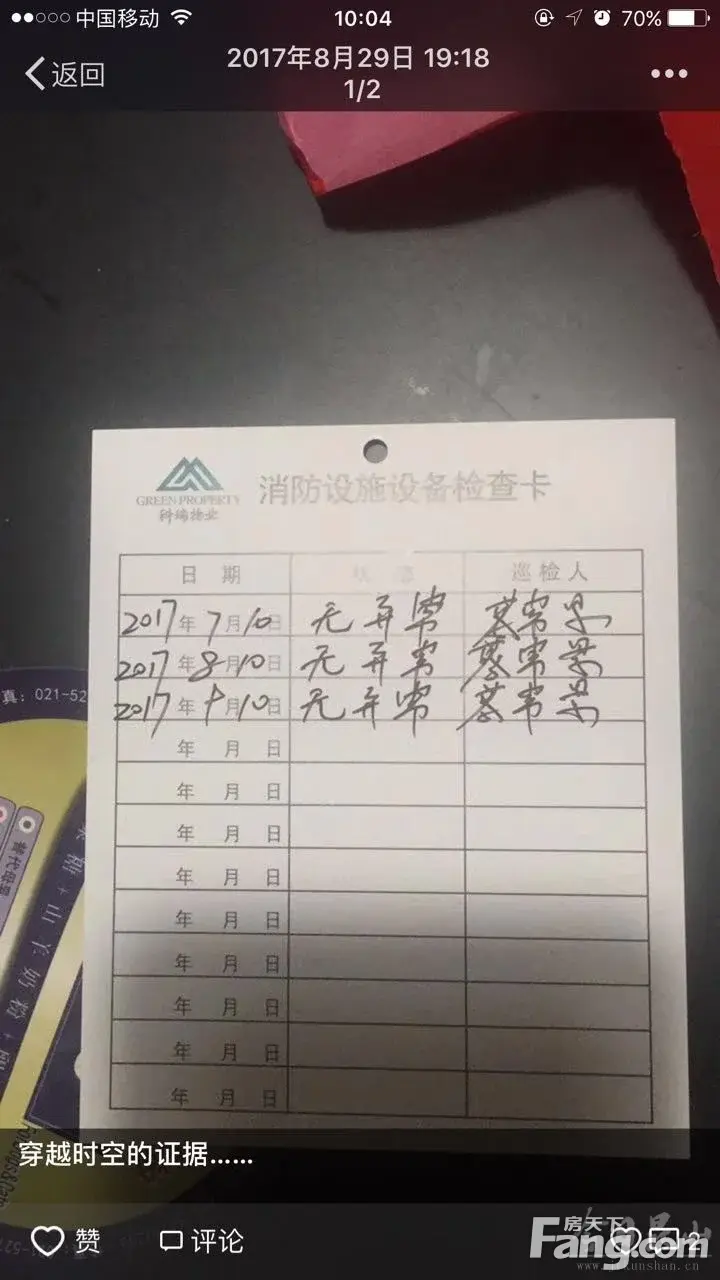 中国移动 10:04 70%
返回 2017年8月29日 19:18
1/2
GREEN PROPERTY
科瑞物业
消防设施设备检查卡
日 期 状 态 巡检人
2017年7月10日 无异常
2017年8月10日 无异常
2017年9月10日 无异常
年 月 日
年 月 日
年 月 日
年 月 日
年 月 日
年 月 日
年 月 日
年 月 日
年 月 日
真：021-52
山羊奶粉
穿越时空的证据……
赞 评论 2
房天下
Fang.com